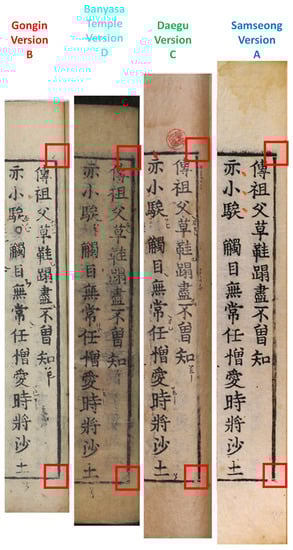 Gongin
Version
B
Banyasa
Temple
Version
D
Daegu
Version
C
Samseong
Version
A
傳祖父草鞋蹋盡不曾知
亦小騃 觸目無常任憎愛時將沙土
傳祖父草鞋蹋盡不曾知
亦小騃 觸目無常任憎愛時將沙土
傳祖父草鞋蹋盡不曾知
亦小騃 觸目無常任憎愛時將沙土
傳祖父草鞋蹋盡不曾知
亦小騃 觸目無常任憎愛時將沙土